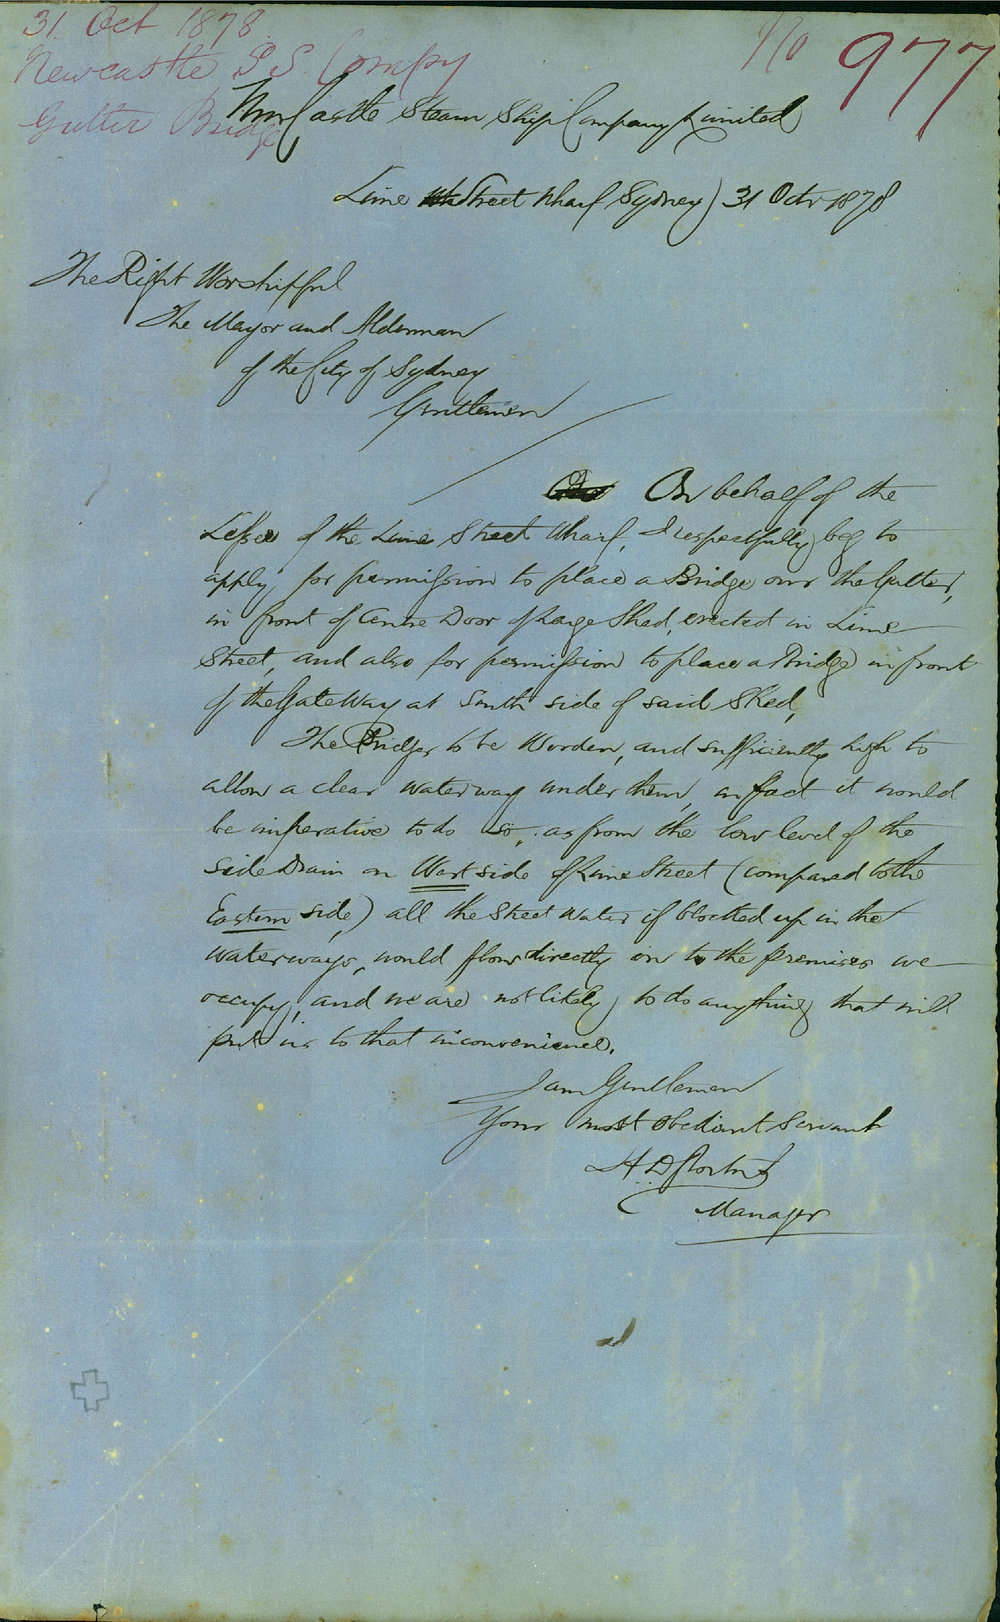 31 Oct 1878
Newcastle S.S. Compy
Gutter Bridge
No 977
New Castle Steam Ship Company Limited
Lime Street Wharf Sydney 31 Octr 1878
The Right Worshipful
The Mayor and Alderman
of the City of Sydney
Gentlemen
On behalf of the
Lessee of the Lime Street Wharf, I respectfully beg to
apply for permission to place a Bridge over the Gutter,
in front of Centre Door of Large Shed, erected in Lime
Street, and also for permission to place a Bridge in front
of the Gate Way at South side of said Shed,
The Bridges to be Wooden, and sufficiently high to
allow a clear waterway under them, in fact it would
be imperative to do so, as from the low level of the
Side Drain on West side of Lime Street (compared to the
Eastern side,) all the Street Water if blocked up in the
waterways, would flow directly on to the premises we
occupy, and we are not likely to do anything that will
put us to that inconvenience.
I am Gentlemen
Your most obedient Servant
Manager